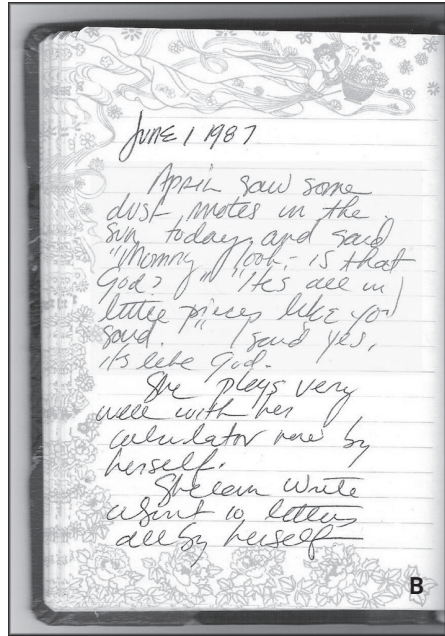 JUNE 1 1987
April saw some
dust motes in the
sun today, and said
"Mommy look - is that
God?" "It's all in
little pieces like you
said." I said yes,
it's like God.
She plays very
well with her
calculator now by
herself.
She can write
about 10 letters
all by herself
B